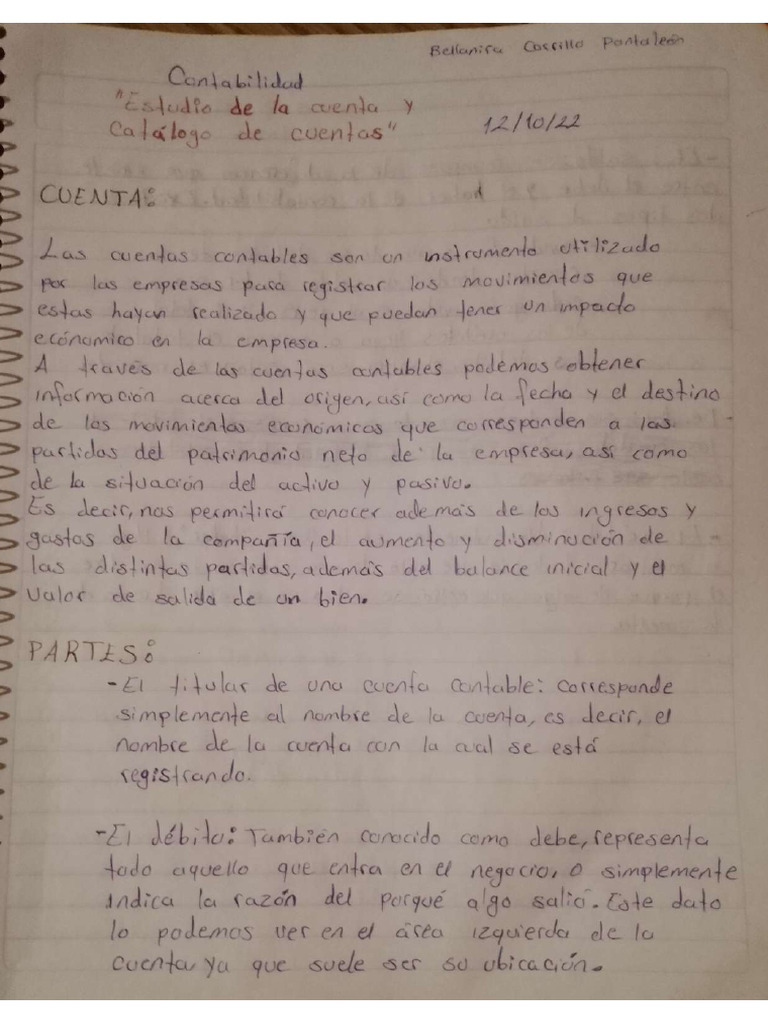 Bellanira Carrillo Pantaleón
Contabilidad
"Estudio de la cuenta y
Catálogo de cuentas"
12/10/22
CUENTA:
Las cuentas contables son un instrumento utilizado
por las empresas para registrar los movimientos que
estas hayan realizado y que puedan tener un impacto
económico en la empresa.
A través de las cuentas contables podemos obtener
información acerca del origen, así como la fecha y el destino
de los movimientos económicos que corresponden a las
partidas del patrimonio neto de la empresa, así como
de la situación del activo y pasivo.
Es decir, nos permitirá conocer además de los ingresos y
gastos de la compañía, el aumento y disminución de
las distintas partidas, además del balance inicial y el
valor de salida de un bien.
PARTES:
-El titular de una cuenta contable: corresponde
simplemente al nombre de la cuenta, es decir, el
nombre de la cuenta con la cual se está
registrando.
-El débito: También conocido como debe, representa
todo aquello que entra en el negocio, o simplemente
indica la razón del porqué algo salió. Este dato
lo podemos ver en el área izquierda de la
cuenta, ya que suele ser su ubicación.